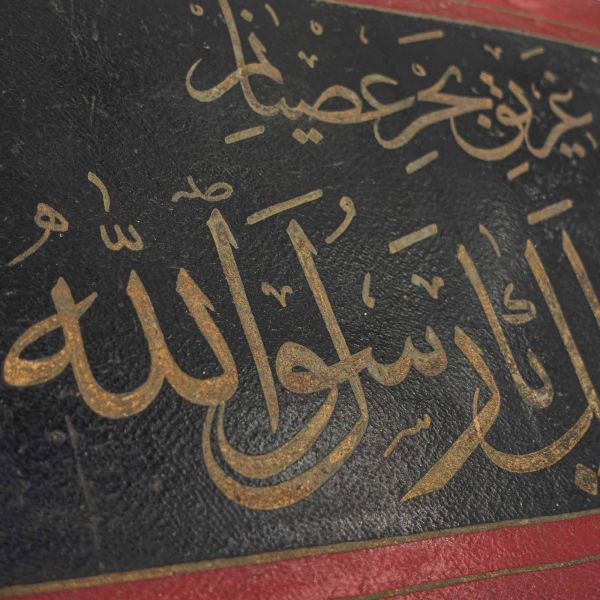 غريق بحر عصيانم
يا رسول الله